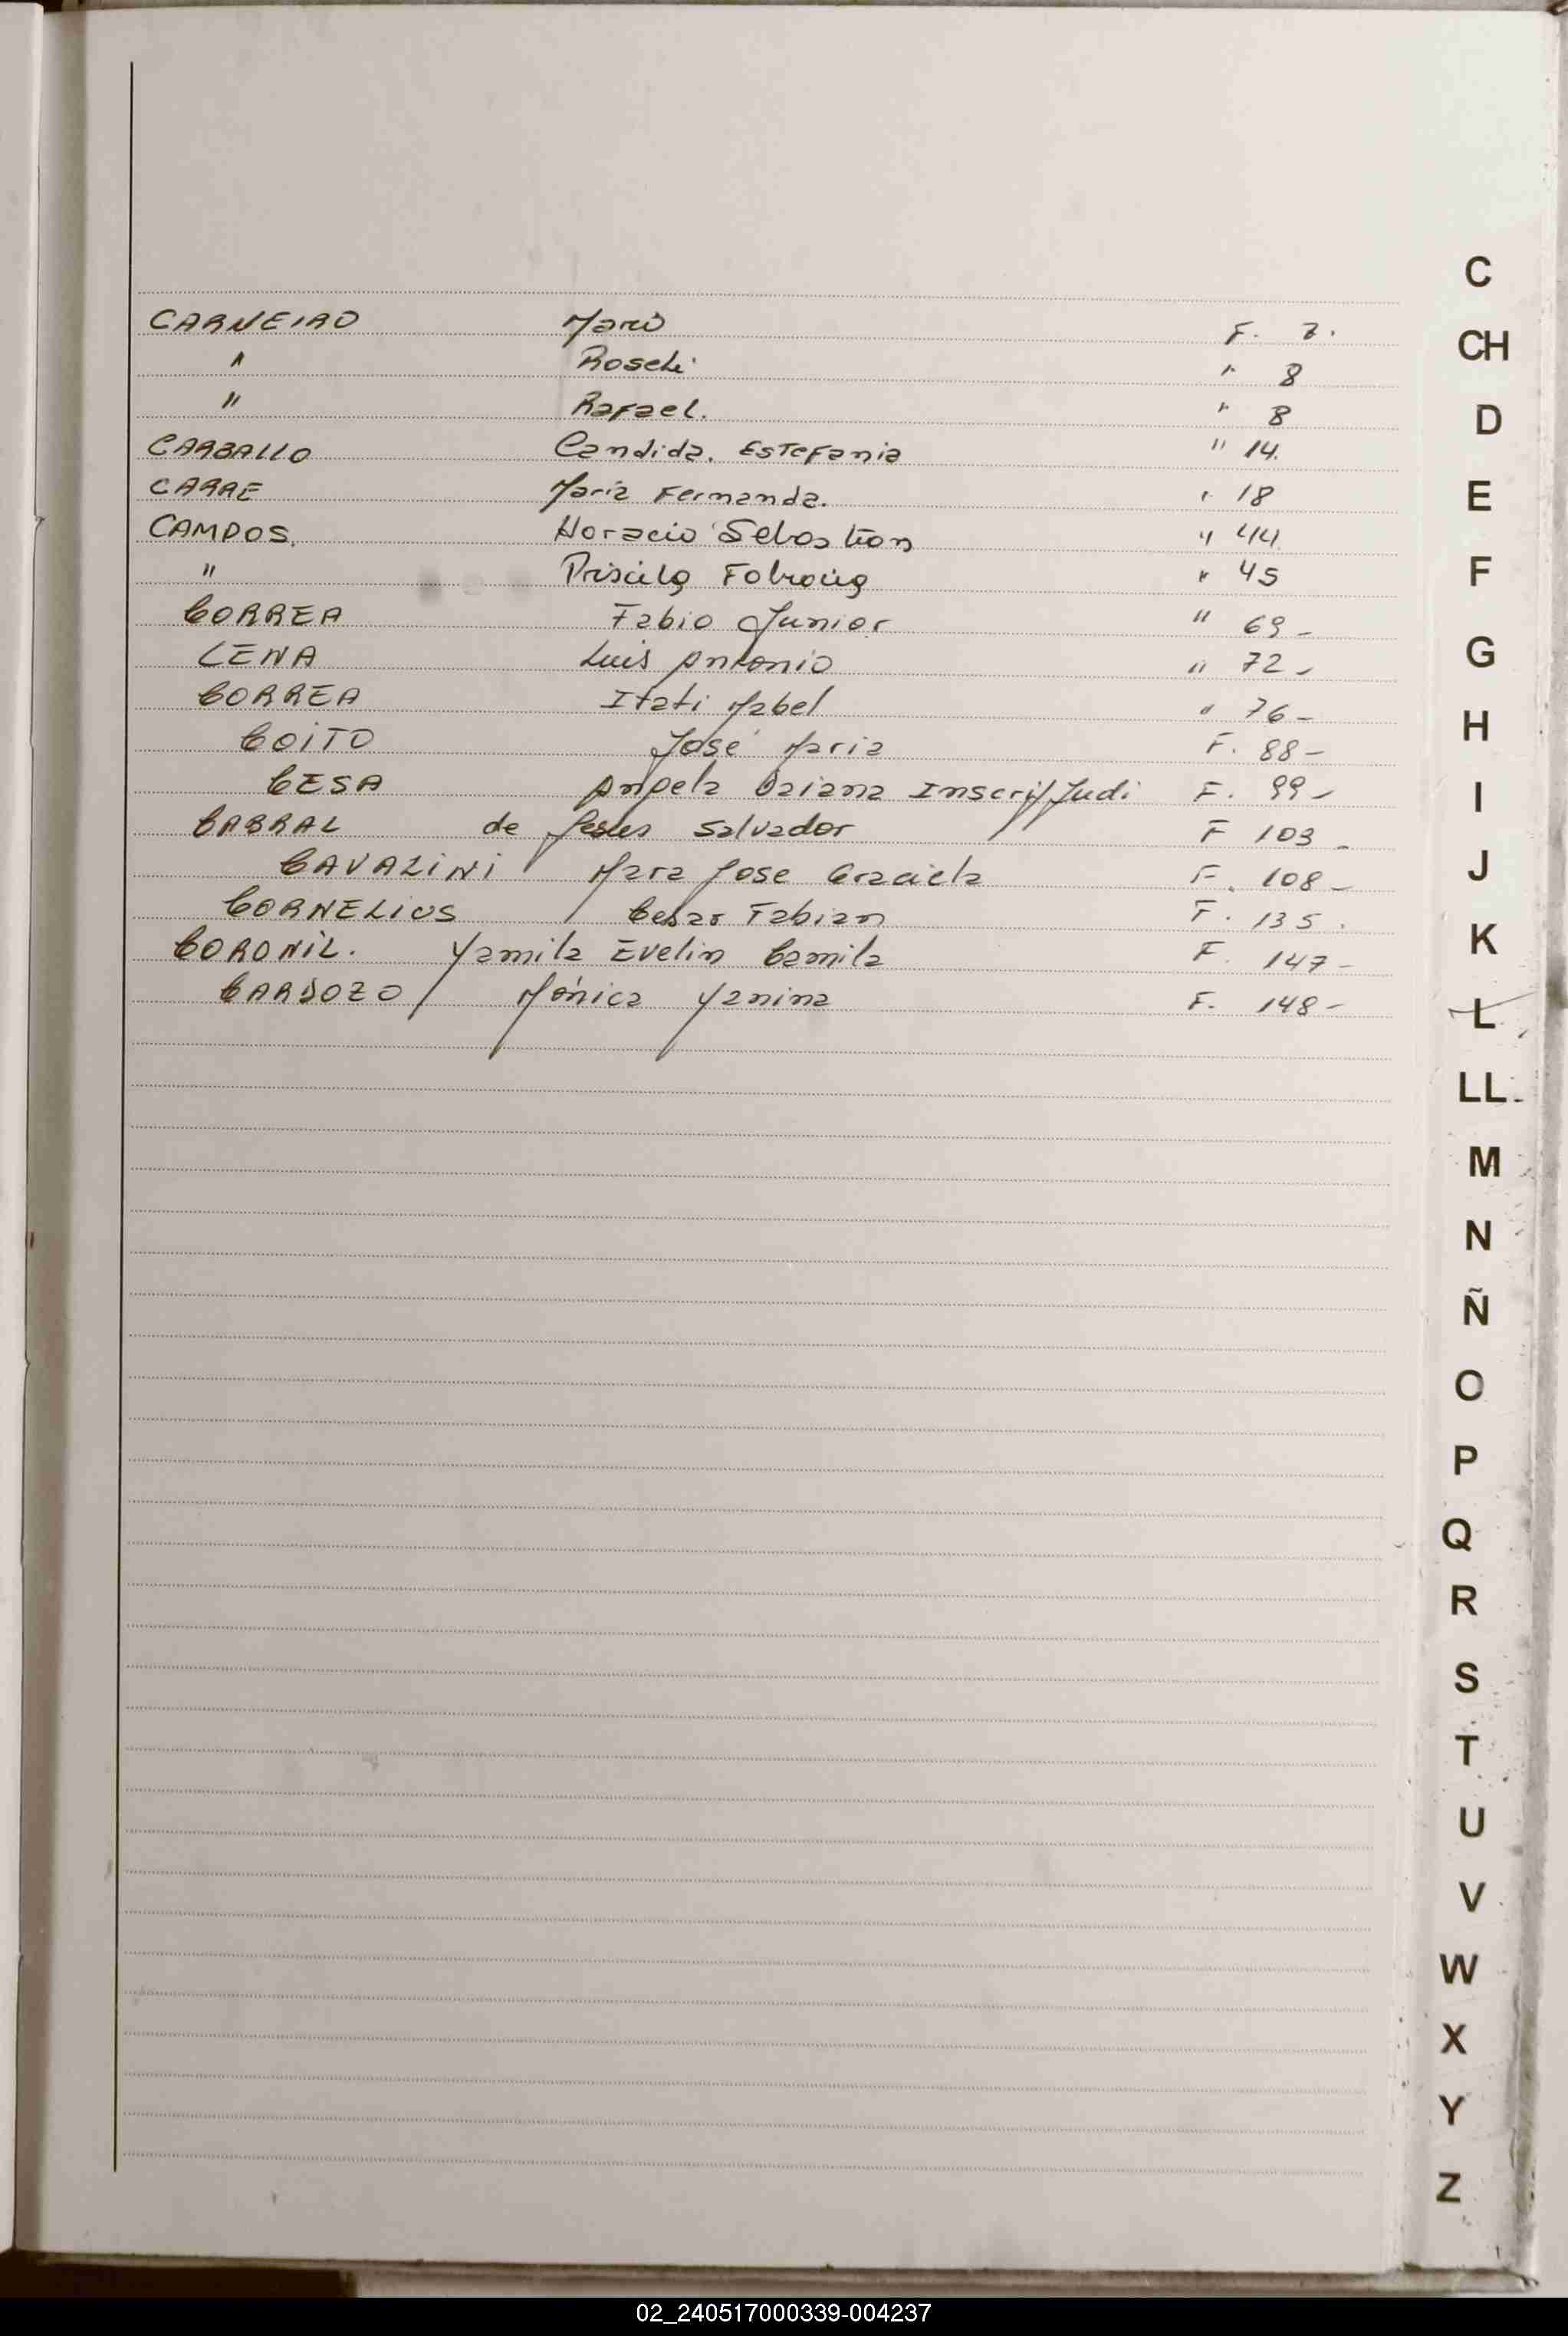 CARNEIRO Marió F. 7.
" Roseli " 8
" Rafael. " 8
CARBALLO Candida. Estefania " 14.
CARRE Maria Fernanda. " 18
CAMPOS. Horacio Sebastian " 44.
" Priscila Fabrocia " 45
CORREA Fabio Junior " 69-
CENA Luis Antonio " 72-
CORREA Itati Mabel " 76-
COITO José Maria F. 88-
CESA Angela Daiana Inscrip/Judi F. 99-
CABRAL de Jesus Salvador F 103-
CAVALINI Mara Jose Graciela F. 108-
CORNELIUS Cesar Fabian F. 135.
CORONIL. Yamila Evelin Camila F. 147-
CARDOZO Mónica Yanina F. 148-
C
CH
D
E
F
G
H
I
J
K
L
LL
M
N
Ñ
O
P
Q
R
S
T
U
V
W
X
Y
Z
02_240517000339-004237